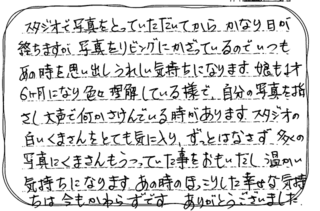 スタジオで写真をとっていただいてから かなり日が
経ちますが、写真をリビングにかざっているのでいつも
あの時を思い出しうれしい気持ちになります。娘も1才
6ヶ月になり色々理解している様で、自分の写真を指
さし大声で何かさけんでいる時があります。スタジオの
白いくまさんをとても気に入り、ずっとはなさず 多くの
写真にくまさんもうつっていた事をおもいだし 温かい
気持ちになります。あの時のほっこりした幸せな気持
ちは 今もかわらずです ありがとうございました